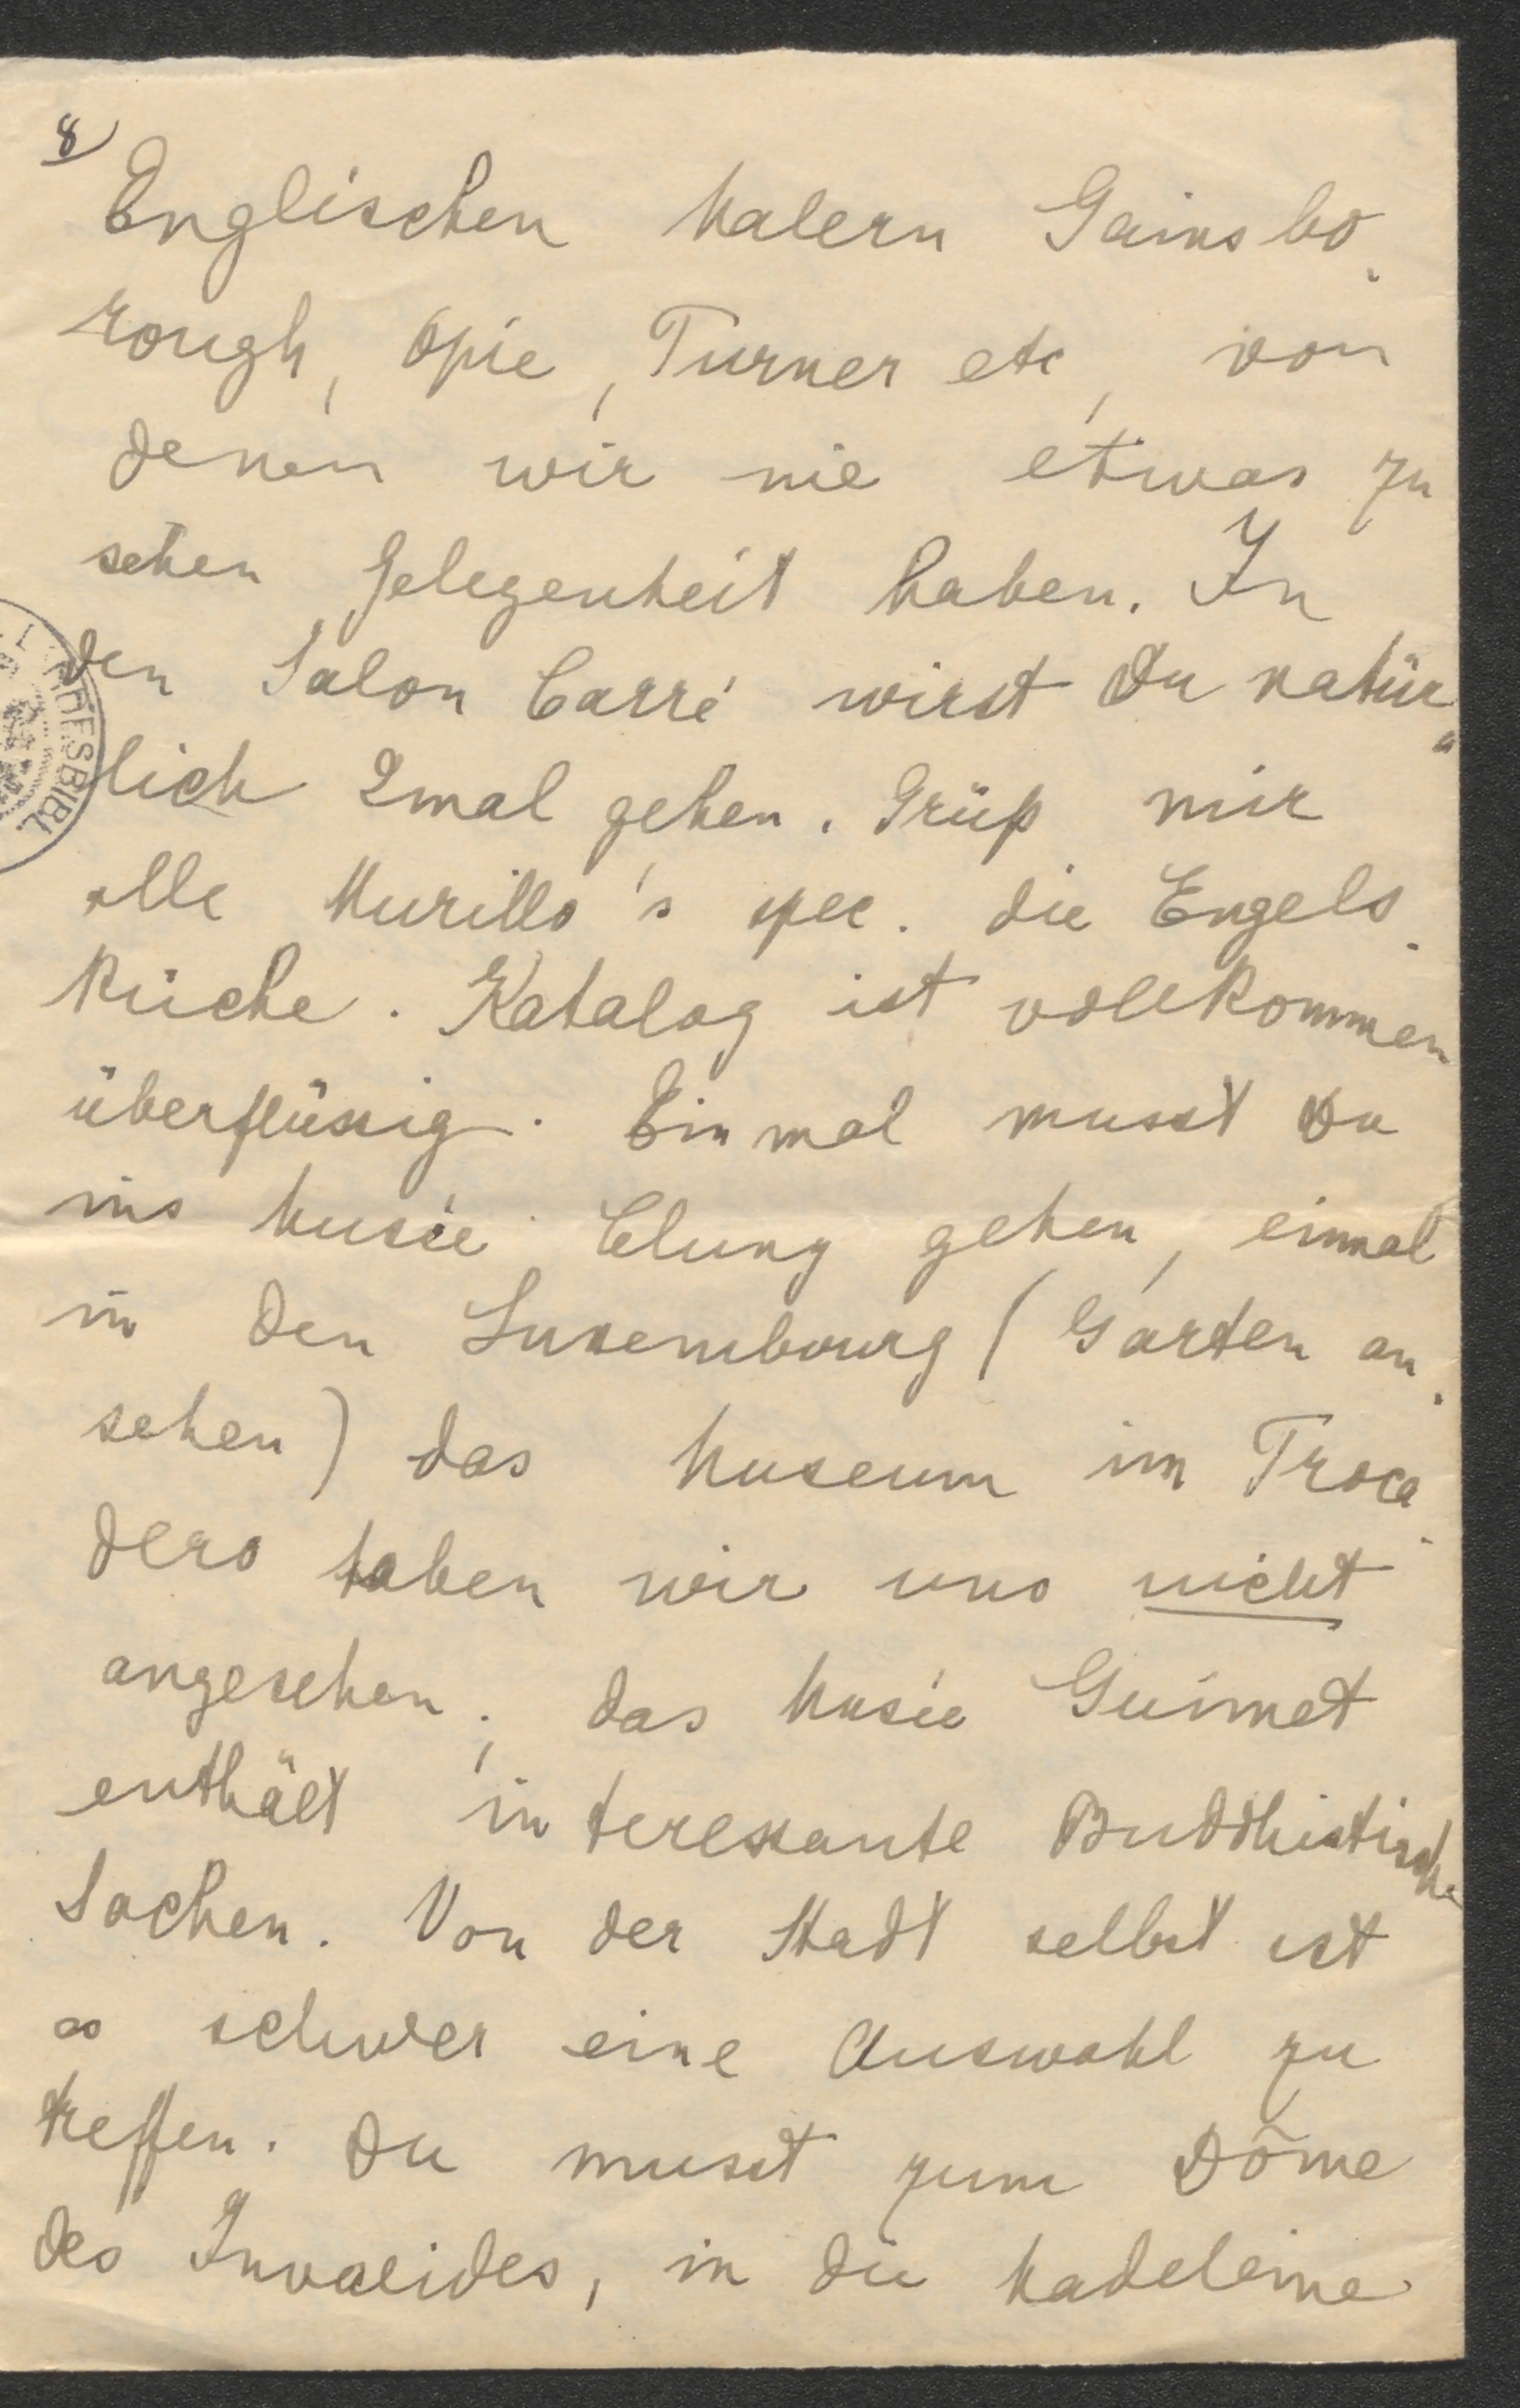 8)
Englischen Malern Gainsbo-
rough, Opie, Turner etc, von
denen wir nie etwas zu
sehen Gelegenheit haben. In
den Salon Carré wirst Du natür-
lich 2mal gehen. Grüß mir
alle Murillo's spec. die Engels-
küche. Katalog ist vollkommen
überflüssig. Einmal musst Du
ins Musée Cluny gehen, einmal
in den Luxembourg (Garten an-
sehen) das Museum im Troca-
dero haben wir uns nicht
angesehen; das Musée Guimet
enthält interessante Buddhistische
Sachen. Von der Stadt selbst ist
es schwer eine Auswahl zu
treffen. Du musst zum Dôme
des Invalides, in die Madeleine